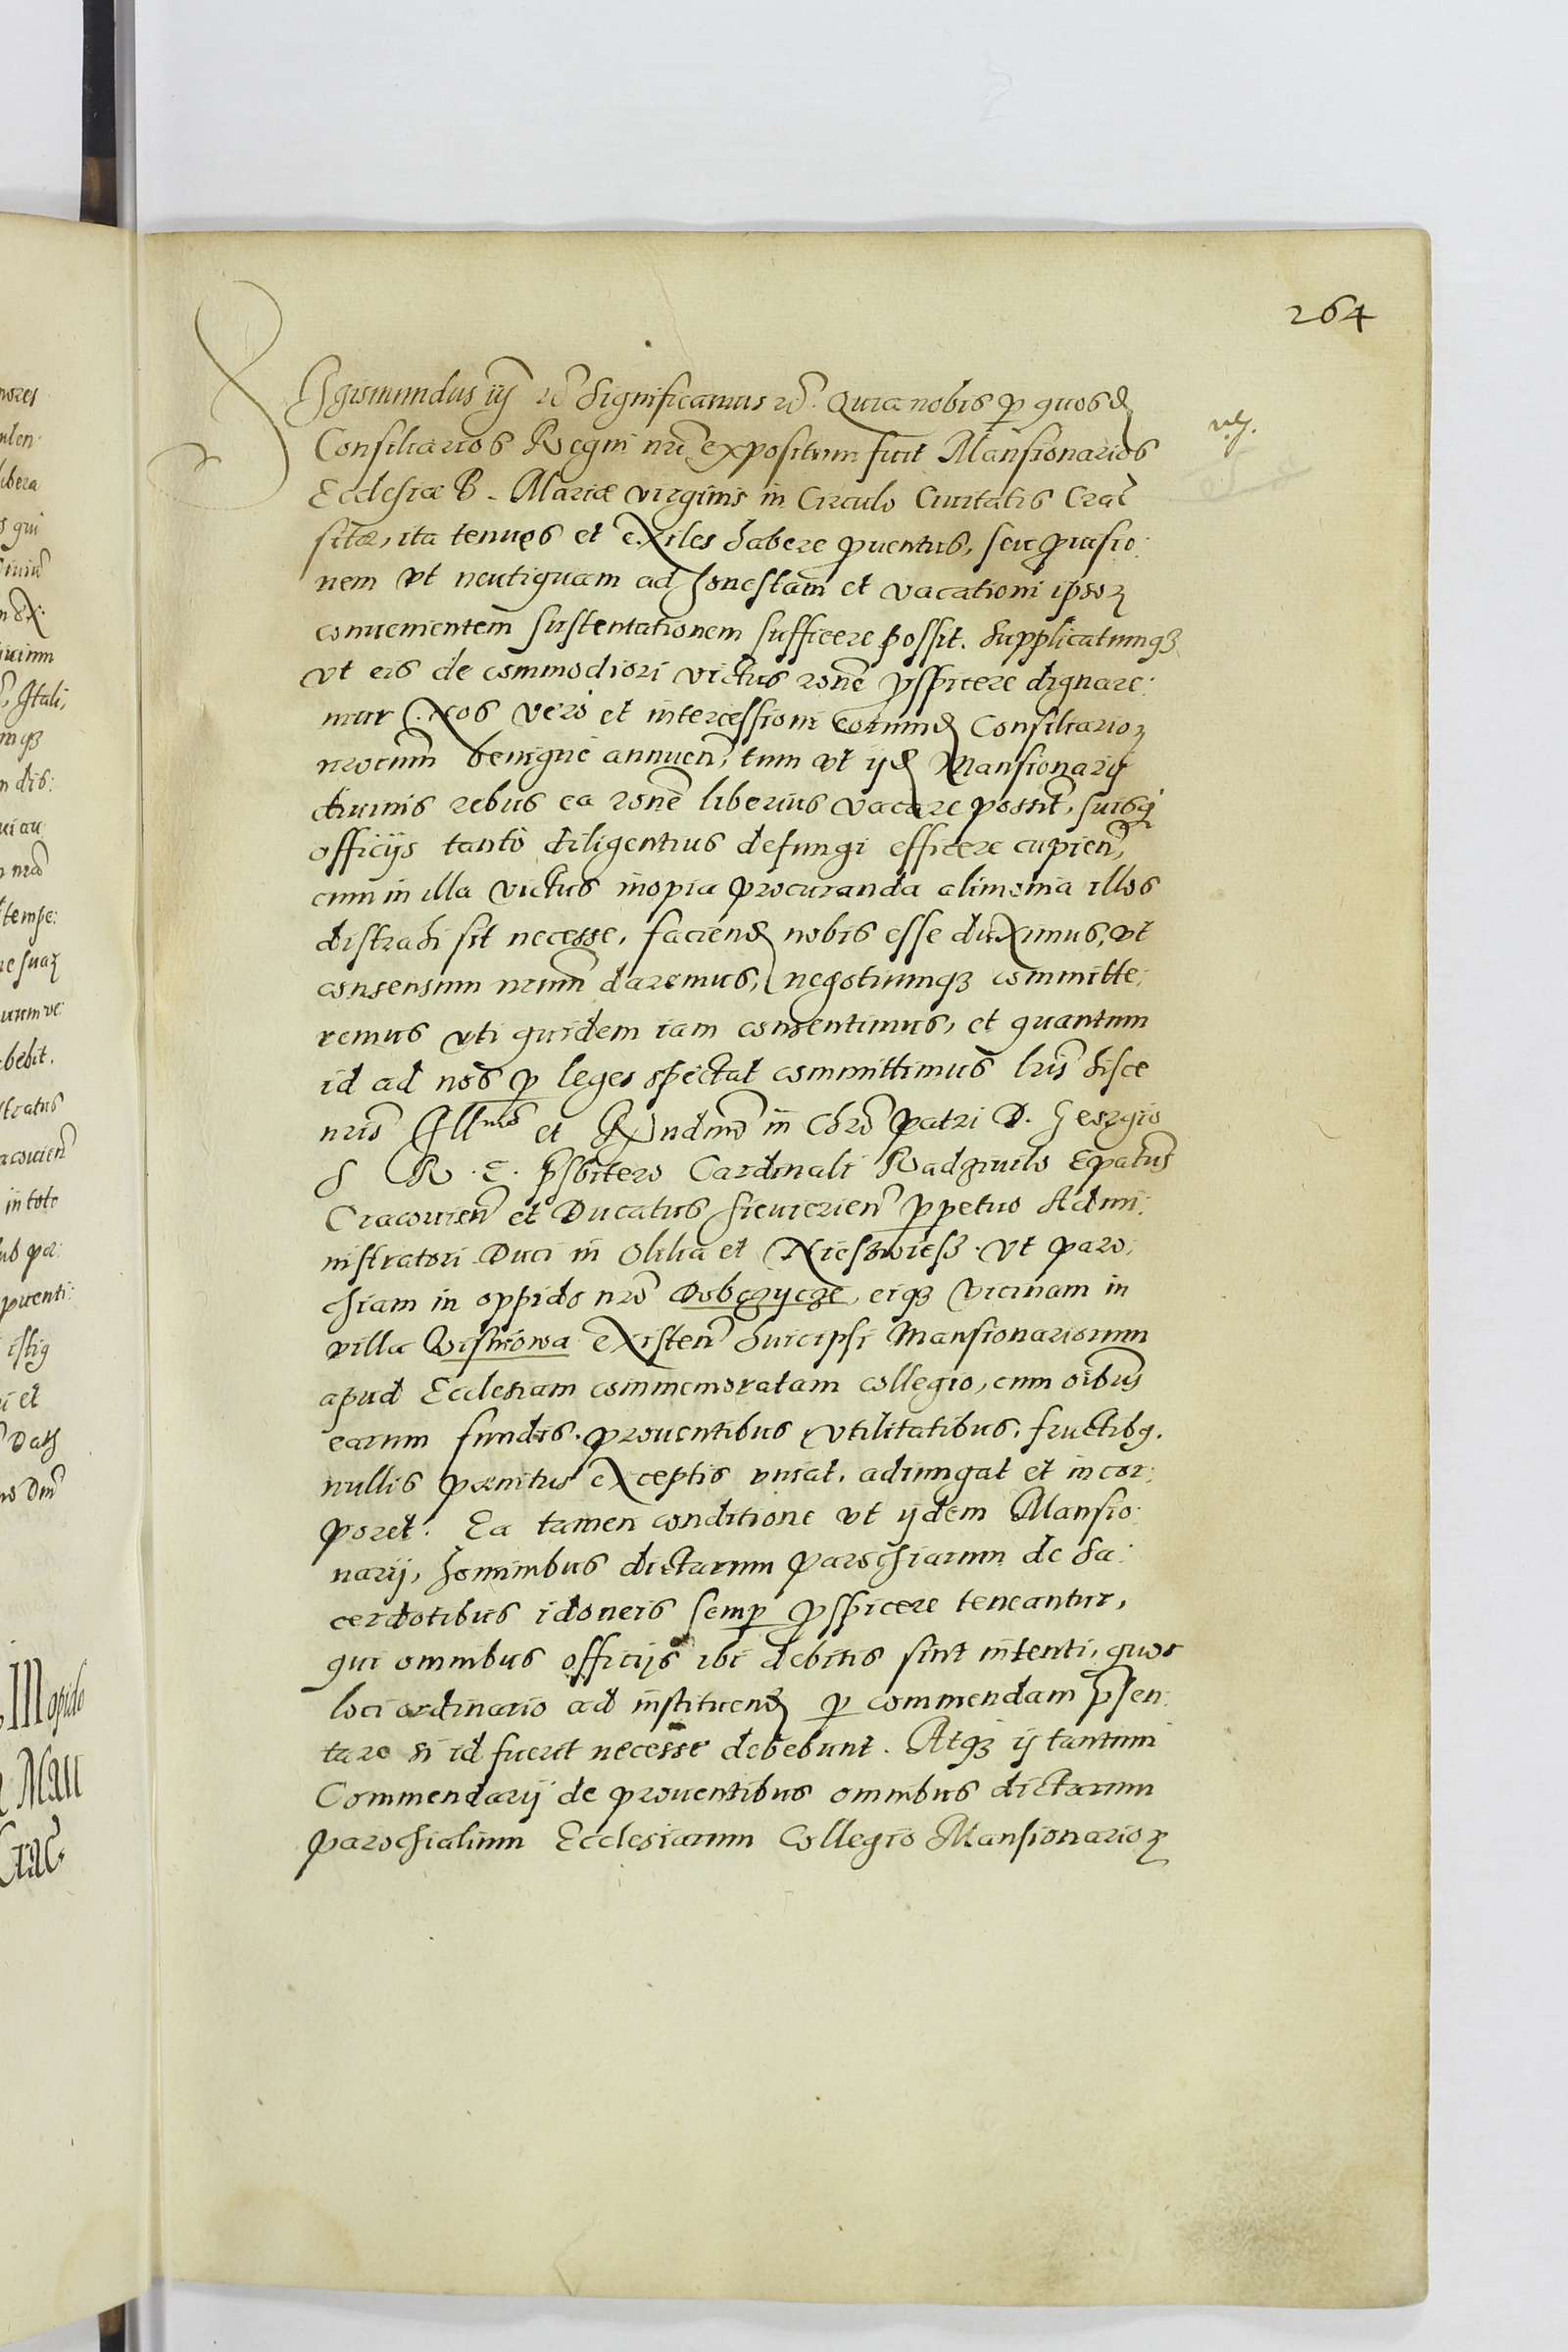 264
Sigismundus iij rc̃ Significamus rc̃. Quia nobis ꝑ quosd̃
Consiliarios Regni nri expositum fuit Mansionarios
Ecclesiæ B. Mariæ virginis in Circulo Ciuitatis Crac̃
sitæ, ita tenues et exiles habere ꝓuentus, seu ꝓuisio:
nem vt neutiquam ad honestam et vacationi ipsoꝝ
conuenientem sustentationem sufficere possit. Supplicatumqꝫ
vt eis de commodiori victus rone ꝓspicere dignare:
mur. Nos vero et intercessioni eorund̃ Consiliarioꝝ
nrorum benigne annuen̄, tum vt ijd̃ Mansionarij
diuinis rebus ea rone liberius vacare possint, suisqꝫ
officijs tantò diligentius defungi efficere cupien̄,
cum in illa victus inopia procuranda alimonia illos
distrahi sit necesse, faciend̃ nobis esse duximus, vt
consensum nrum daremus, negotiumqꝫ committe:
remus vti quidem iam consentimus, et quantum
id ad nos ꝑ leges spectat committimus lris hisce
nris Illmo et Rndmo in Chro Patri D. Georgio
S R. E. Prsbitero Cardinali Radziuilo Epatus
Cracouien̄ et Ducatus Sieuierien̄ ꝑpetuo Admi:
nistratori Duci in Olika et Nieswiesz. Vt paro:
chiam in oppido nro Dobczycze, eiqꝫ vicinam in
villa Wisniowa existen̄ huic ipsi Mansionariorum
apud Ecclesiam commemoratam collegio, cum oibus
earum fundis, prouentibus vtilitatibus, fructibꝫ.
nullis pænitus exceptis vniat, adiungat et incor:
poret. Ea tamen conditione vt ijdem Mansio:
narij, hominibus dictarum parochiarum de Sa:
cerdotibus idoneis semꝑ ꝓspicere teneantur,
qui omnibus officijs ibi debitis sint intenti, quos
loci ordinario ad instituend̃ ꝑ commendam p̃sen:
tare si id fuerit necesse debebunt. Atqꝫ ij tantum
Commendarij de prouentibus omnibus dictarum
parochialium Ecclesiarum Collegio Mansionarioꝝ